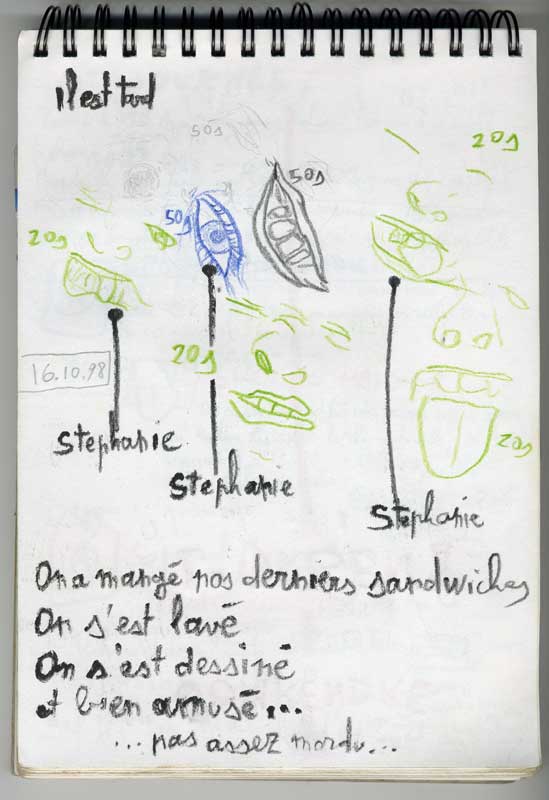 il est tard
50g
50g
20g
50g
20g
20g
16.10.98
20g
Stephanie
Stephanie
Stephanie
On a mangé nos derniers sandwiches
On s'est lavé
On s'est dessiné
et bien amusé...
...pas assez mordu...